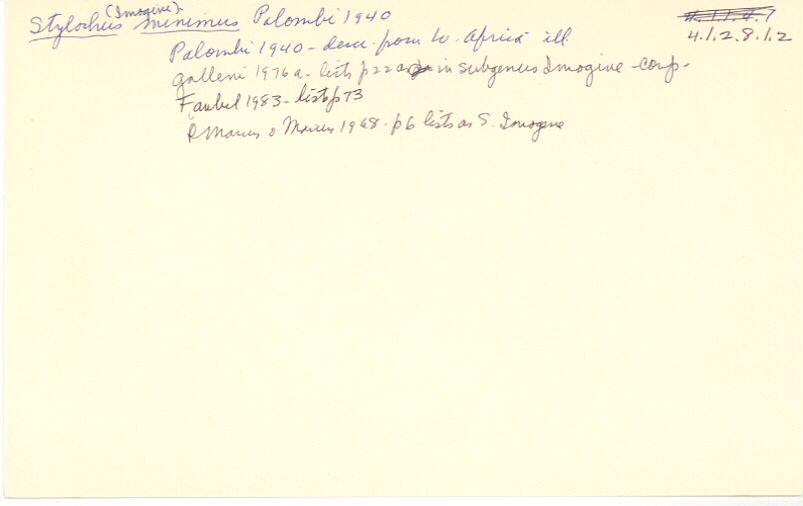 (Imogine)
Stylochus minimus Palombi 1940
4.1.1.4.7
4.1.2.8.1.2
Palombi 1940 - descr. from W. Africa ill
Galleni 1976a - lists p22 as in subgenus Imogine - comp.
Faubel 1983 - list p73
Marcus & Marcus 1968 - p6 lists as S. Imogene